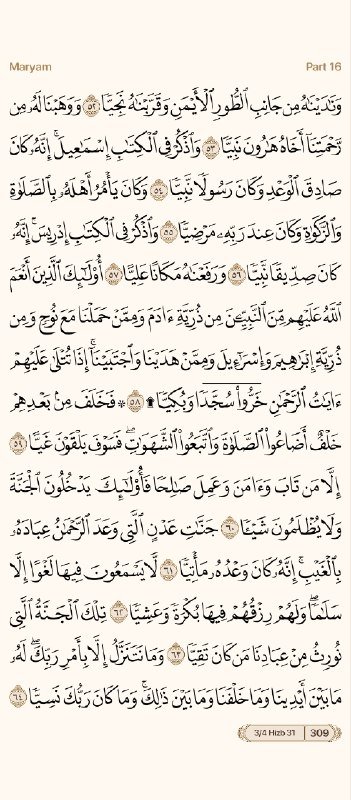 Maryam Part 16
وَنَٰدَيْنَٰهُ مِن جَانِبِ ٱلطُّورِ ٱلْأَيْمَنِ وَقَرَّبْنَٰهُ نَجِيًّا ٥٢ وَوَهَبْنَا لَهُۥ مِن
رَّحْمَتِنَآ أَخَاهُ هَٰرُونَ نَبِيًّا ٥٣ وَٱذْكُرْ فِى ٱلْكِتَٰبِ إِسْمَٰعِيلَ ۚ إِنَّهُۥ كَانَ
صَادِقَ ٱلْوَعْدِ وَكَانَ رَسُولًا نَّبِيًّا ٥٤ وَكَانَ يَأْمُرُ أَهْلَهُۥ بِٱلصَّلَوٰةِ
وَٱلزَّكَوٰةِ وَكَانَ عِندَ رَبِّهِۦ مَرْضِيًّا ٥٥ وَٱذْكُرْ فِى ٱلْكِتَٰبِ إِدْرِيسَ ۚ إِنَّهُۥ
كَانَ صِدِّيقًا نَّبِيًّا ٥٦ وَرَفَعْنَٰهُ مَكَانًا عَلِيًّا ٥٧ أُو۟لَٰٓئِكَ ٱلَّذِينَ أَنْعَمَ
ٱللَّهُ عَلَيْهِم مِّنَ ٱلنَّبِيِّۦنَ مِن ذُرِّيَّةِ ءَادَمَ وَمِمَّنْ حَمَلْنَا مَعَ نُوحٍ وَمِن
ذُرِّيَّةِ إِبْرَٰهِيمَ وَإِسْرَٰٓءِيلَ وَمِمَّنْ هَدَيْنَا وَٱجْتَبَيْنَآ ۚ إِذَا تُتْلَىٰ عَلَيْهِمْ
ءَايَٰتُ ٱلرَّحْمَٰنِ خَرُّوا۟ سُجَّدًا وَبُكِيًّا ۩ ٥٨ ۞ فَخَلَفَ مِنۢ بَعْدِهِمْ
خَلْفٌ أَضَاعُوا۟ ٱلصَّلَوٰةَ وَٱتَّبَعُوا۟ ٱلشَّهَوَٰتِ ۖ فَسَوْفَ يَلْقَوْنَ غَيًّا ٥٩
إِلَّا مَن تَابَ وَءَامَنَ وَعَمِلَ صَٰلِحًا فَأُو۟لَٰٓئِكَ يَدْخُلُونَ ٱلْجَنَّةَ
وَلَا يُظْلَمُونَ شَيْـًٔا ٦٠ جَنَّٰتِ عَدْنٍ ٱلَّتِى وَعَدَ ٱلرَّحْمَٰنُ عِبَادَهُۥ
بِٱلْغَيْبِ ۚ إِنَّهُۥ كَانَ وَعْدُهُۥ مَأْتِيًّا ٦١ لَّا يَسْمَعُونَ فِيهَا لَغْوًا إِلَّا
سَلَٰمًا ۖ وَلَهُمْ رِزْقُهُمْ فِيهَا بُكْرَةً وَعَشِيًّا ٦٢ تِلْكَ ٱلْجَنَّةُ ٱلَّتِى
نُورِثُ مِنْ عِبَادِنَا مَن كَانَ تَقِيًّا ٦٣ وَمَا نَتَنَزَّلُ إِلَّا بِأَمْرِ رَبِّكَ ۖ لَهُۥ
مَا بَيْنَ أَيْدِينَا وَمَا خَلْفَنَا وَمَا بَيْنَ ذَٰلِكَ ۚ وَمَا كَانَ رَبُّكَ نَسِيًّا ٦٤
3/4 Hizb 31 309